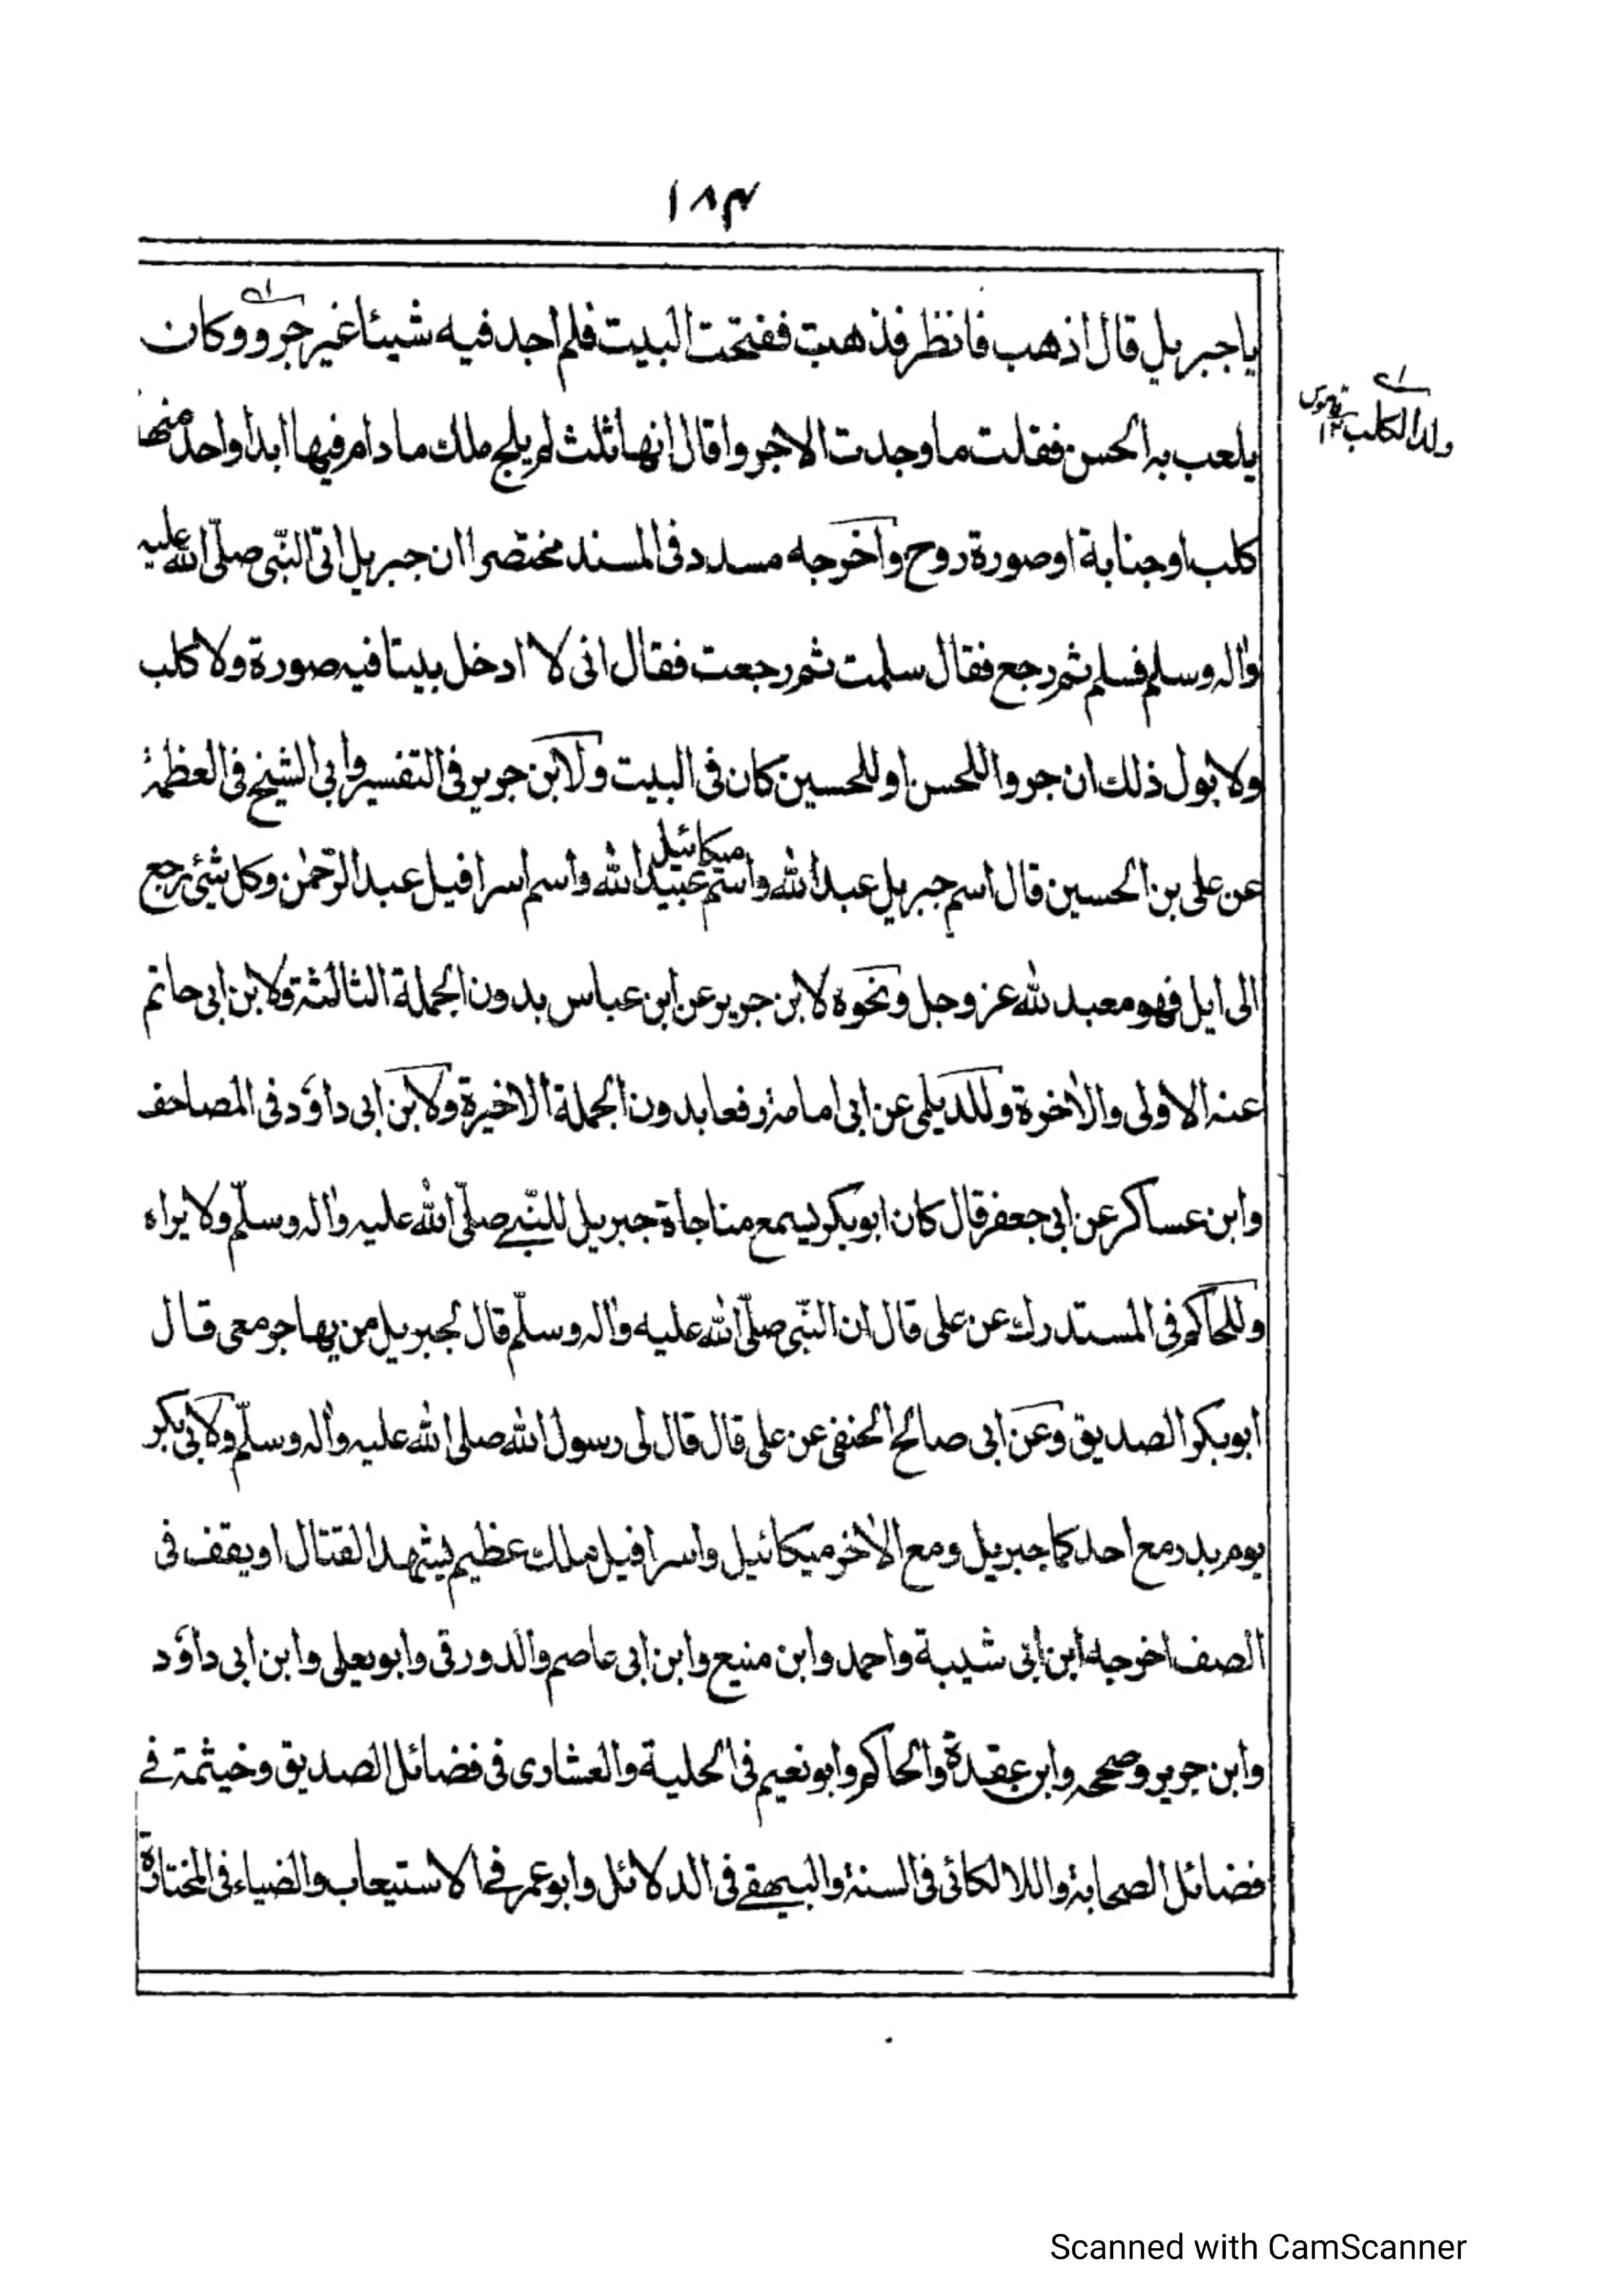 ١٨٣
يا جبريل قال اذهب فانظر فذهبت ففتحت البيت فلم اجد فيه شيئا غير جرو وكان
يلعب به الحسن فقلت ما وجدت الا جروا قال انها ثلث لم يلج ملك ما دام فيها ابدا واحد منها
كلب او جنابة او صورة روح واخرجه مسدد فى المسند مختصرا ان جبريل اتى النبى صلى الله عليه
واله وسلم فسلم ثم رجع فقال سلمت ثم رجعت فقال انى لا ادخل بيتا فيه صورة ولا كلب
ولا بول ذلك ان جروا للحسن او للحسين كان فى البيت ولابن جرير فى التفسير وابى الشيخ فى العظمة
عن على بن الحسين قال اسم جبريل عبد الله واسم ميكائيل عبيد الله واسم اسرافيل عبد الرحمٰن وكل شئ رجع
الى ايل فهو معبد لله عز وجل ونحوه لابن جرير عن ابن عباس بدون الجملة الثالثة ولابن ابى حاتم
عنه الاولى والاٰخرة وللديلمى عن ابى امامة رفعا بدون الجملة الاخيرة ولابن ابى داؤد فى المصاحف
وابن عساكر عن ابى جعفر قال كان ابوبكر يسمع مناجاة جبريل للنبى صلى الله عليه واٰله وسلم ولا يراه
وللحاكم فى المستدرك عن على قال ان النبى صلى الله عليه واٰله وسلم قال لجبريل من يهاجر معى قال
ابوبكر الصديق وعن ابى صالح الحنفى عن على قال قال لى رسول الله صلى الله عليه واٰله وسلم ولابى بكر
يوم بدر مع احدكما جبريل ومع الاٰخر ميكائيل واسرافيل ملك عظيم يشهد القتال او يقف فى
الصف اخرجه ابن ابى شيبة واحمد وابن منيع وابن ابى عاصم والدورقى وابويعلى وابن ابى داؤد
وابن جرير وصححه وابن عقدة والحاكم وابونعيم فى الحلية والعشارى فى فضائل الصديق وخيثمة فى
فضائل الصحابة واللالكائى فى السنة والبيهقى فى الدلائل وابوعمر فى الاستيعاب والضياء فى المختارة
ولد الكلب قاموس ١٢
Scanned with CamScanner